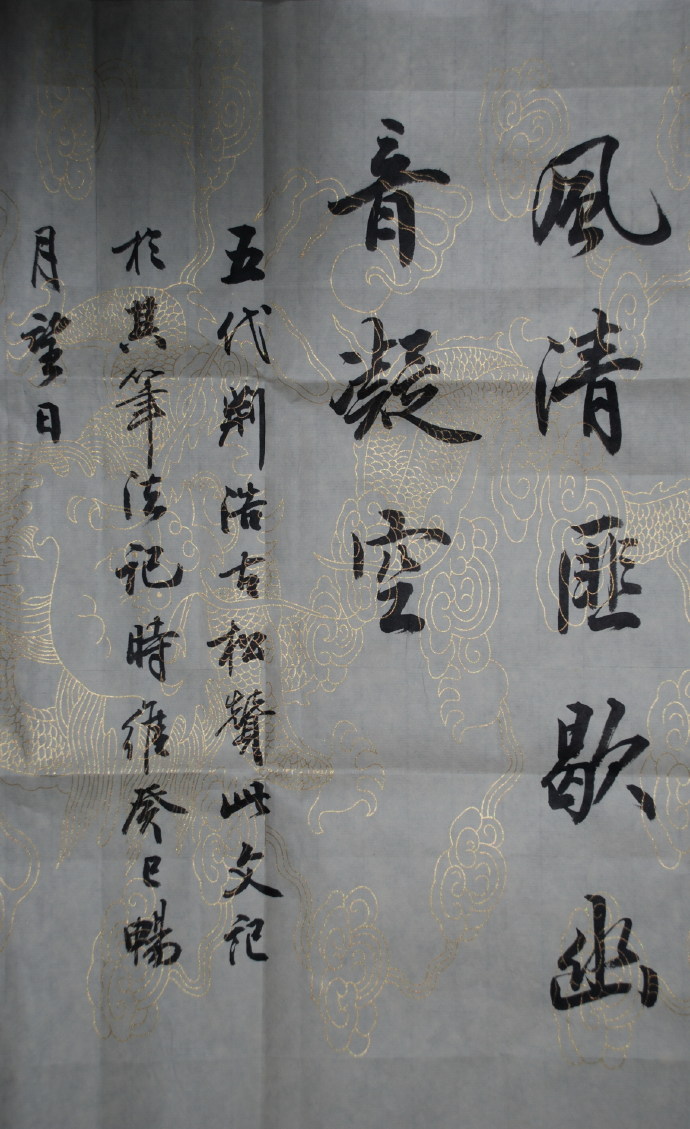 風清匪歇幽
音凝空
五代荆浩古松贊此文記
於其筆法記時維癸巳暢
月望日